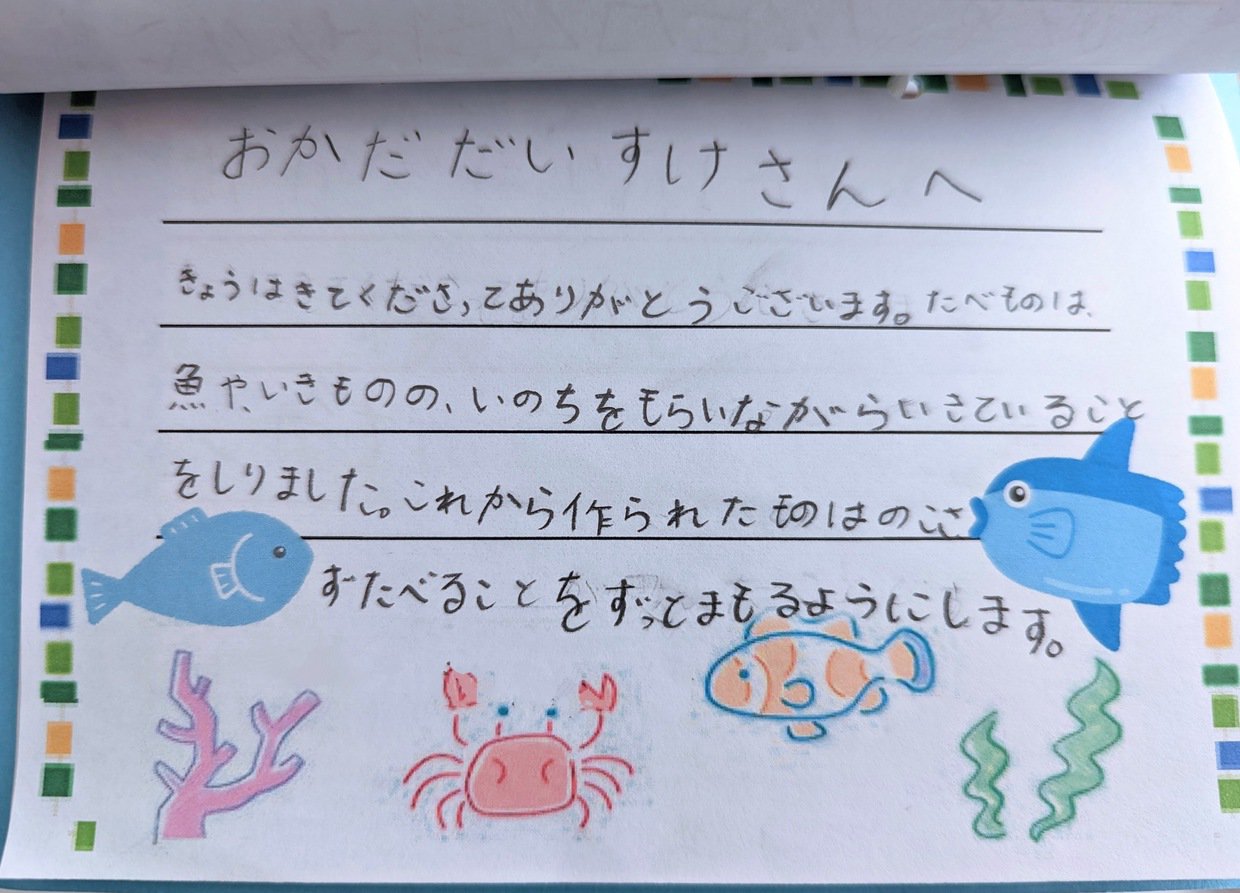 おかだ だい すけ さんへ
きょうはきてくださってありがとうございます。たべものは、
魚や、いきものの、いのちをもらいながらいきていること
をしりました。これから作られたものはのこさ
ずたべることをずっとまもるようにします。